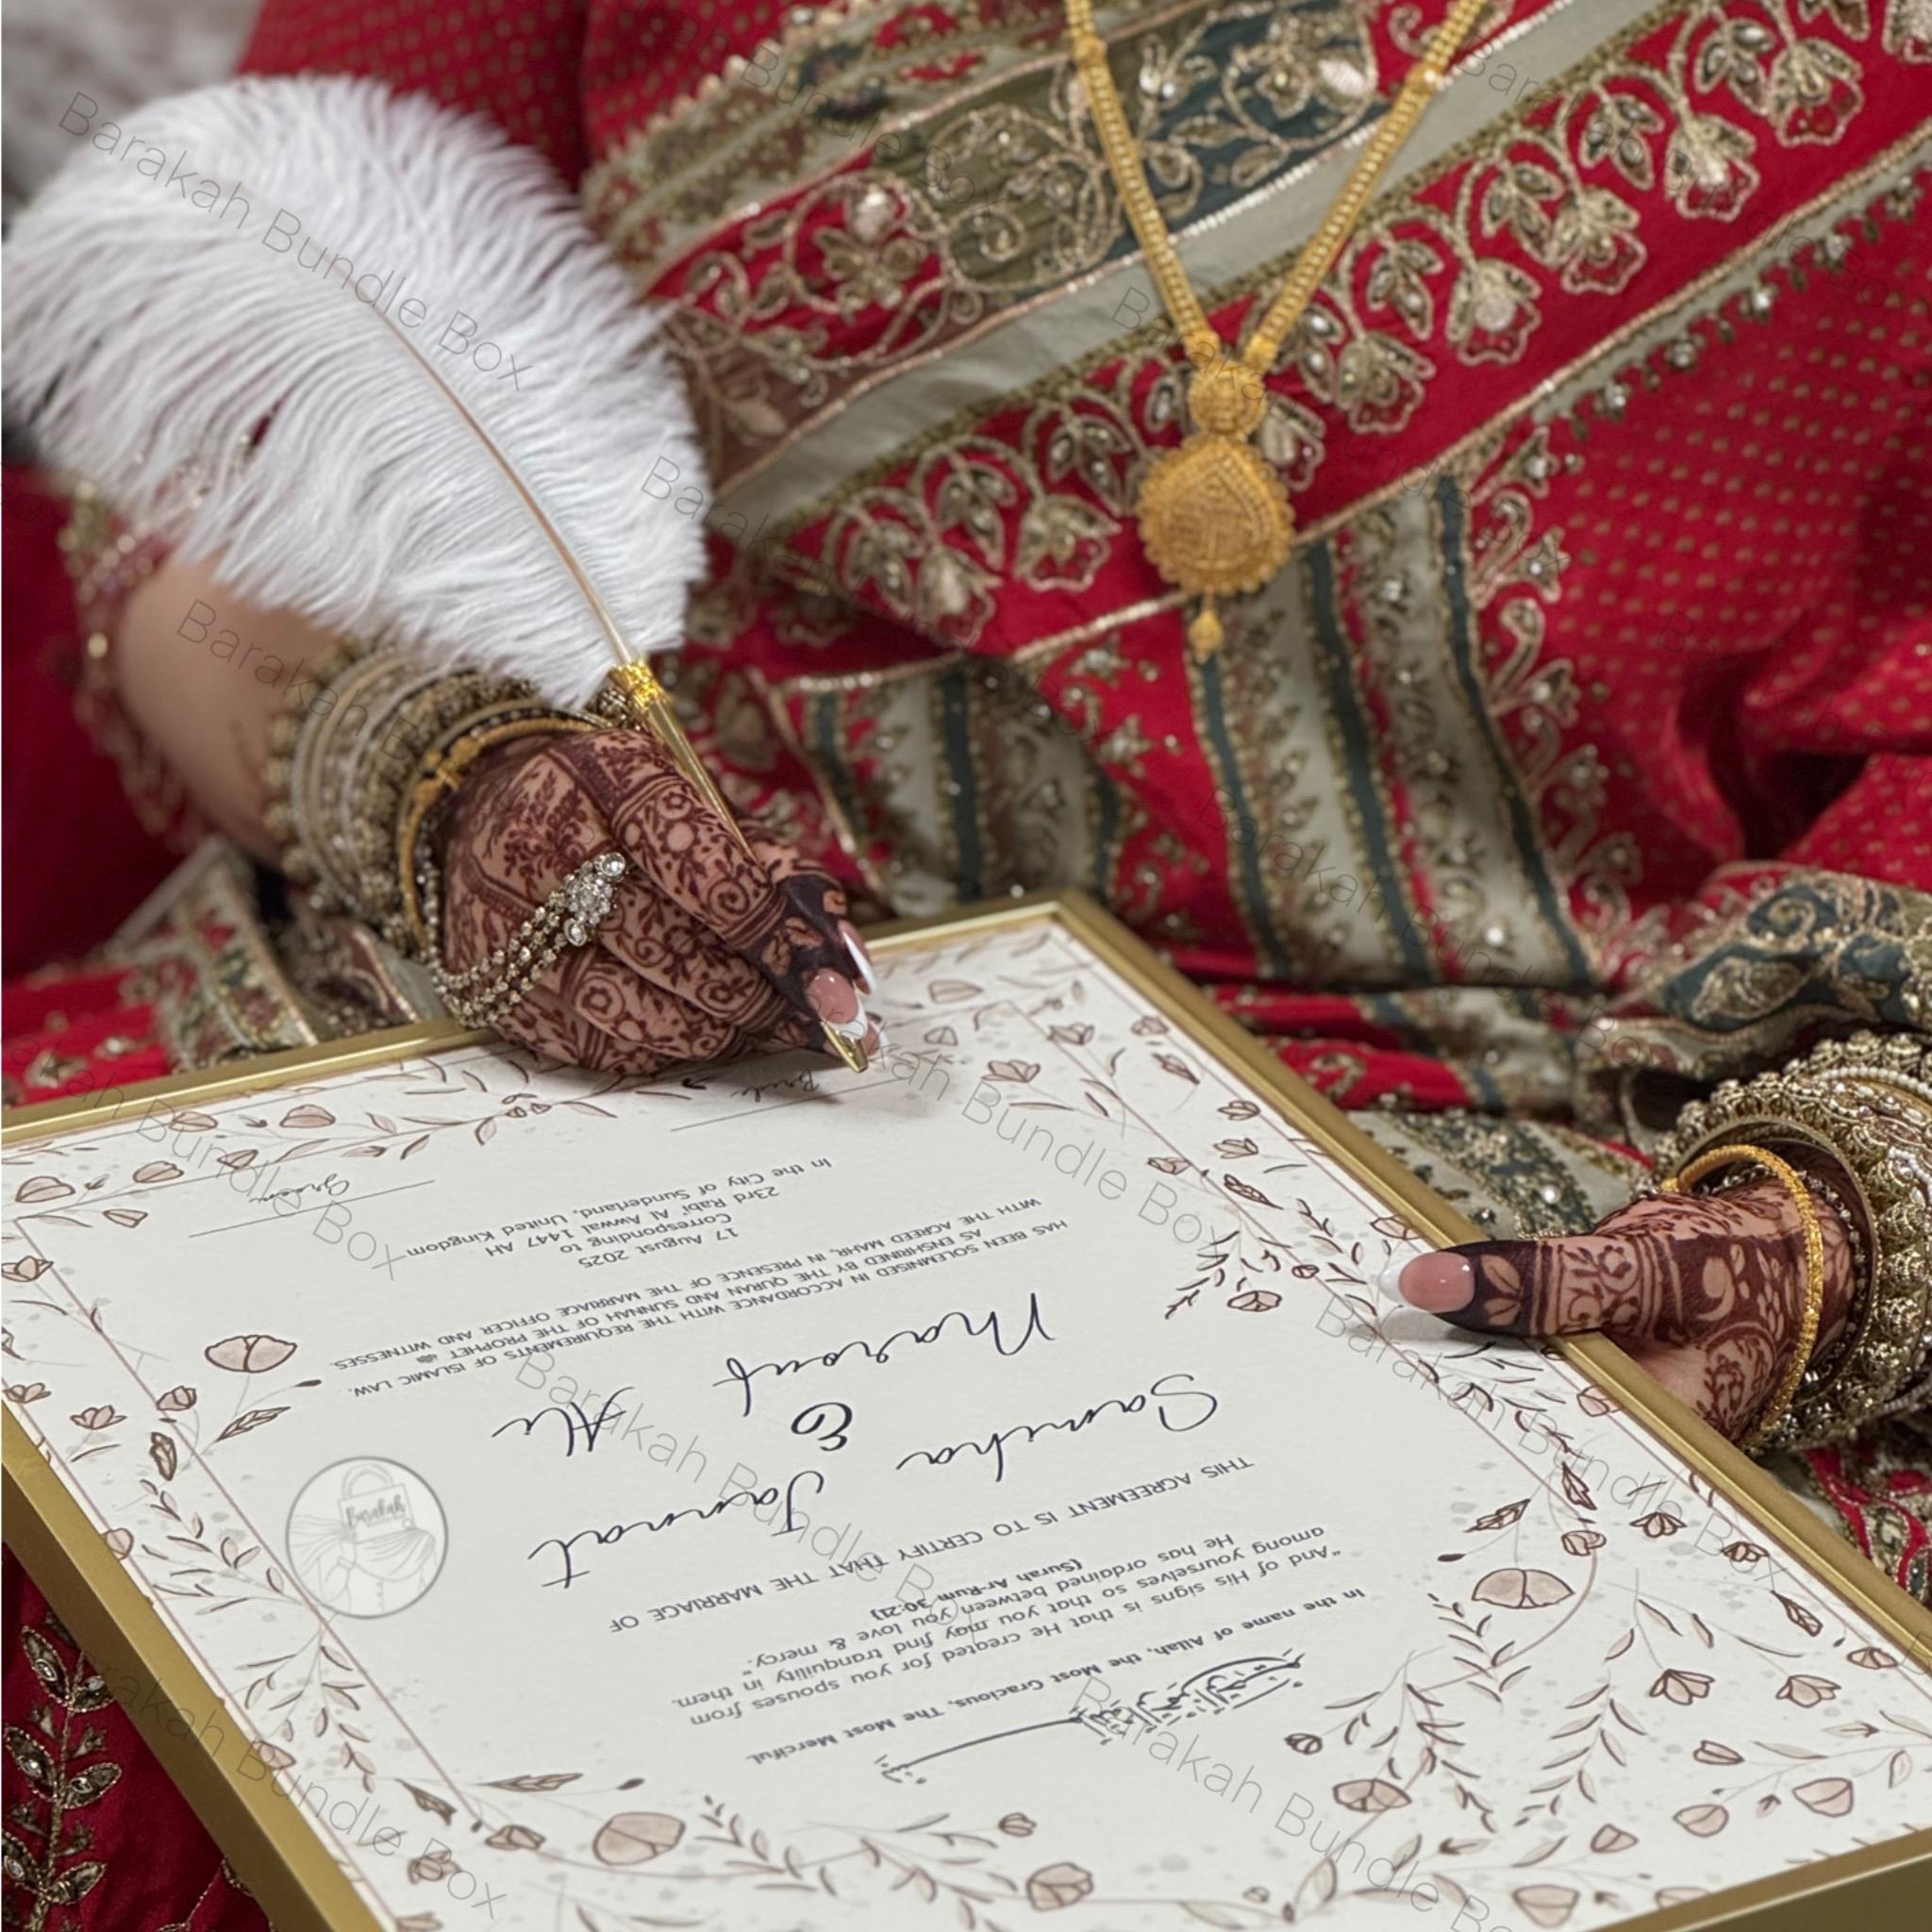 In the name of Allah, the Most Gracious, The Most Merciful.
"And of His signs is that He created for you spouses from
among yourselves so that you may find tranquility in them.
He has ordained between you love & mercy."
(Surah Ar-Rum 30:21)
THIS AGREEMENT IS TO CERTIFY THAT THE MARRIAGE OF
Samiha Jannat
&
Maroof Ali
HAS BEEN SOLEMNISED IN ACCORDANCE WITH THE REQUIREMENTS OF ISLAMIC LAW,
AS ENSHRINED BY THE QURAN AND SUNNAH OF THE PROPHET ﷺ
WITH THE AGREED MAHR, IN PRESENCE OF THE MARRIAGE OFFICER AND WITNESSES.
17 August 2025
Corresponding to
23rd Rabi' Al Awwal 1447 AH
In the City of Sunderland, United Kingdom
Bride
Groom
Barakah
Barakah Bundle Box